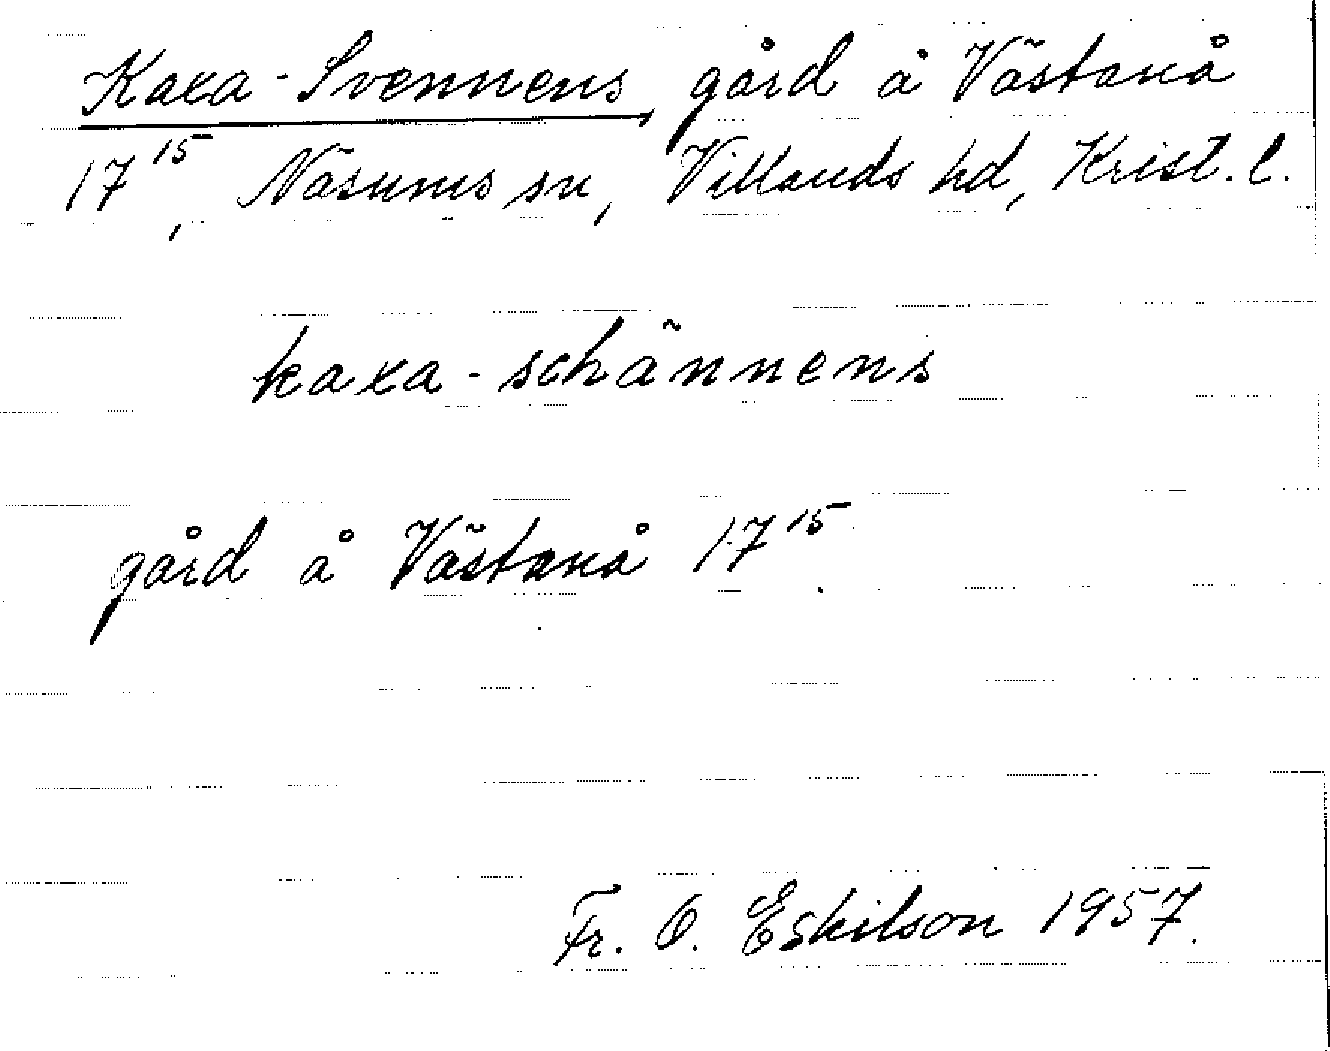 Kaxa-Svennens, gård å Västanå
17¹⁵, Näsums sn, Villands hd, Krist. l.
kaxa-schännens
gård å Västanå 17¹⁵.
Fr. O. Eskilson 1957.